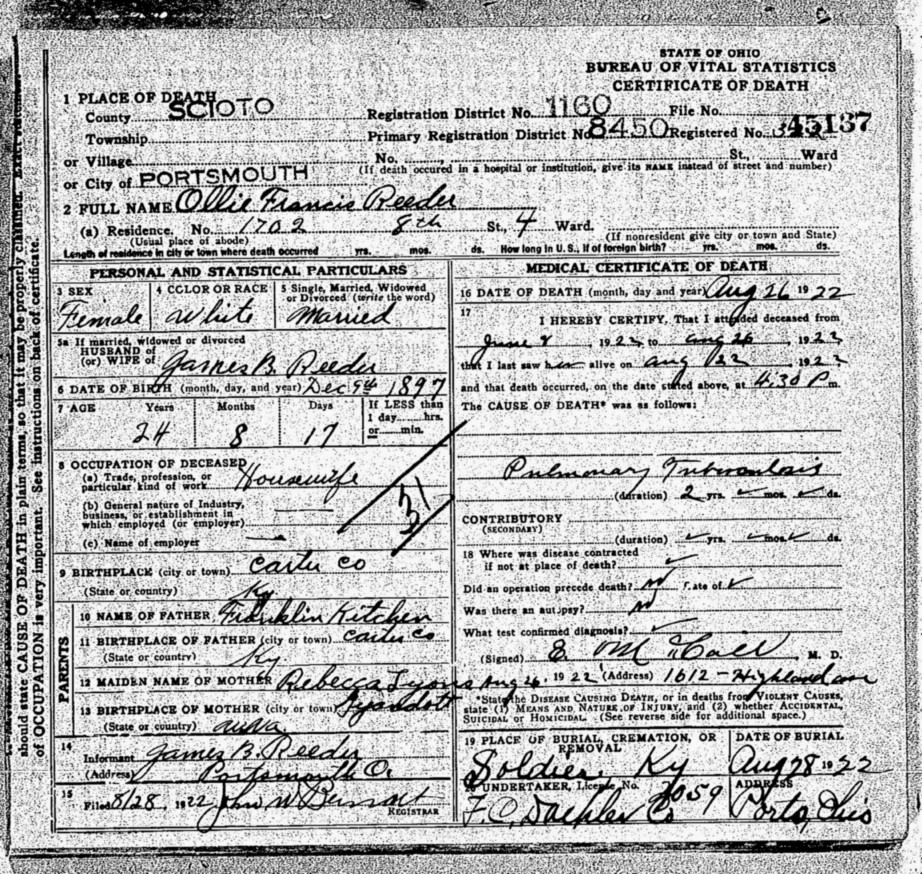 STATE OF OHIO
BUREAU OF VITAL STATISTICS
CERTIFICATE OF DEATH
1 PLACE OF DEATH
County SCIOTO Registration District No. 1160 File No.
Township Primary Registration District No. 8450 Registered No. 45137
or Village No. St., Ward
(If death occured in a hospital or institution, give its NAME instead of street and number)
or City of PORTSMOUTH
2 FULL NAME Ollie Francis Reeder
(a) Residence. No. 1702 8th St., 4 Ward.
(Usual place of abode) (If nonresident give city or town and State)
Length of residence in city or town where death occurred yrs. mos. ds. How long in U.S., if of foreign birth? yrs. mos. ds.
PERSONAL AND STATISTICAL PARTICULARS
3 SEX 4 COLOR OR RACE 5 Single, Married, Widowed
or Divorced (write the word)
Female White Married
5a If married, widowed or divorced
HUSBAND of
(or) WIFE of James B. Reeder
6 DATE OF BIRTH (month, day, and year) Dec 9th 1897
7 AGE Years Months Days If LESS than
1 day hrs.
or min.
24 8 17
8 OCCUPATION OF DECEASED
(a) Trade, profession, or
particular kind of work Housewife
(b) General nature of Industry,
business, or establishment in
which employed (or employer)
(c) Name of employer
31
9 BIRTHPLACE (city or town) Carter Co
(State or country) Ky
PARENTS
10 NAME OF FATHER Franklin Kitchen
11 BIRTHPLACE OF FATHER (city or town) Carter Co
(State or country) Ky
12 MAIDEN NAME OF MOTHER Rebecca Lyons
13 BIRTHPLACE OF MOTHER (city or town)
(State or country)
14
Informant James B. Reeder
(Address) Portsmouth O.
15
Filed 8/28, 1922 John W
REGISTRAR
MEDICAL CERTIFICATE OF DEATH
16 DATE OF DEATH (month, day and year) Aug 26 1922
17
I HEREBY CERTIFY, That I attended deceased from
June 8, 1922 to Aug 26, 1922
that I last saw h alive on Aug 22, 1922
and that death occurred, on the date stated above, at 4:30 P m.
The CAUSE OF DEATH* was as follows:
Pulmonary Tuberculosis
(duration) 2 yrs. mos. ds.
CONTRIBUTORY
(SECONDARY)
(duration) yrs. mos. ds.
18 Where was disease contracted
if not at place of death?
Did an operation precede death? no Date of
Was there an autopsy? no
What test confirmed diagnosis?
(Signed) E. M. D.
Aug 26, 1922 (Address) 1612 - Highland ave
*State the DISEASE CAUSING DEATH, or in deaths from VIOLENT CAUSES,
state (1) MEANS AND NATURE OF INJURY, and (2) whether ACCIDENTAL,
SUICIDAL or HOMICIDAL. (See reverse side for additional space.)
19 PLACE OF BURIAL, CREMATION, OR REMOVAL DATE OF BURIAL
Soldier, Ky Aug 28 1922
20 UNDERTAKER, License No. ADDRESS
F. C. Daehler Co Ports, Ohio
should state CAUSE OF DEATH in plain terms, so that it may be properly classified.
of OCCUPATION is very important. See instructions on back of certificate.